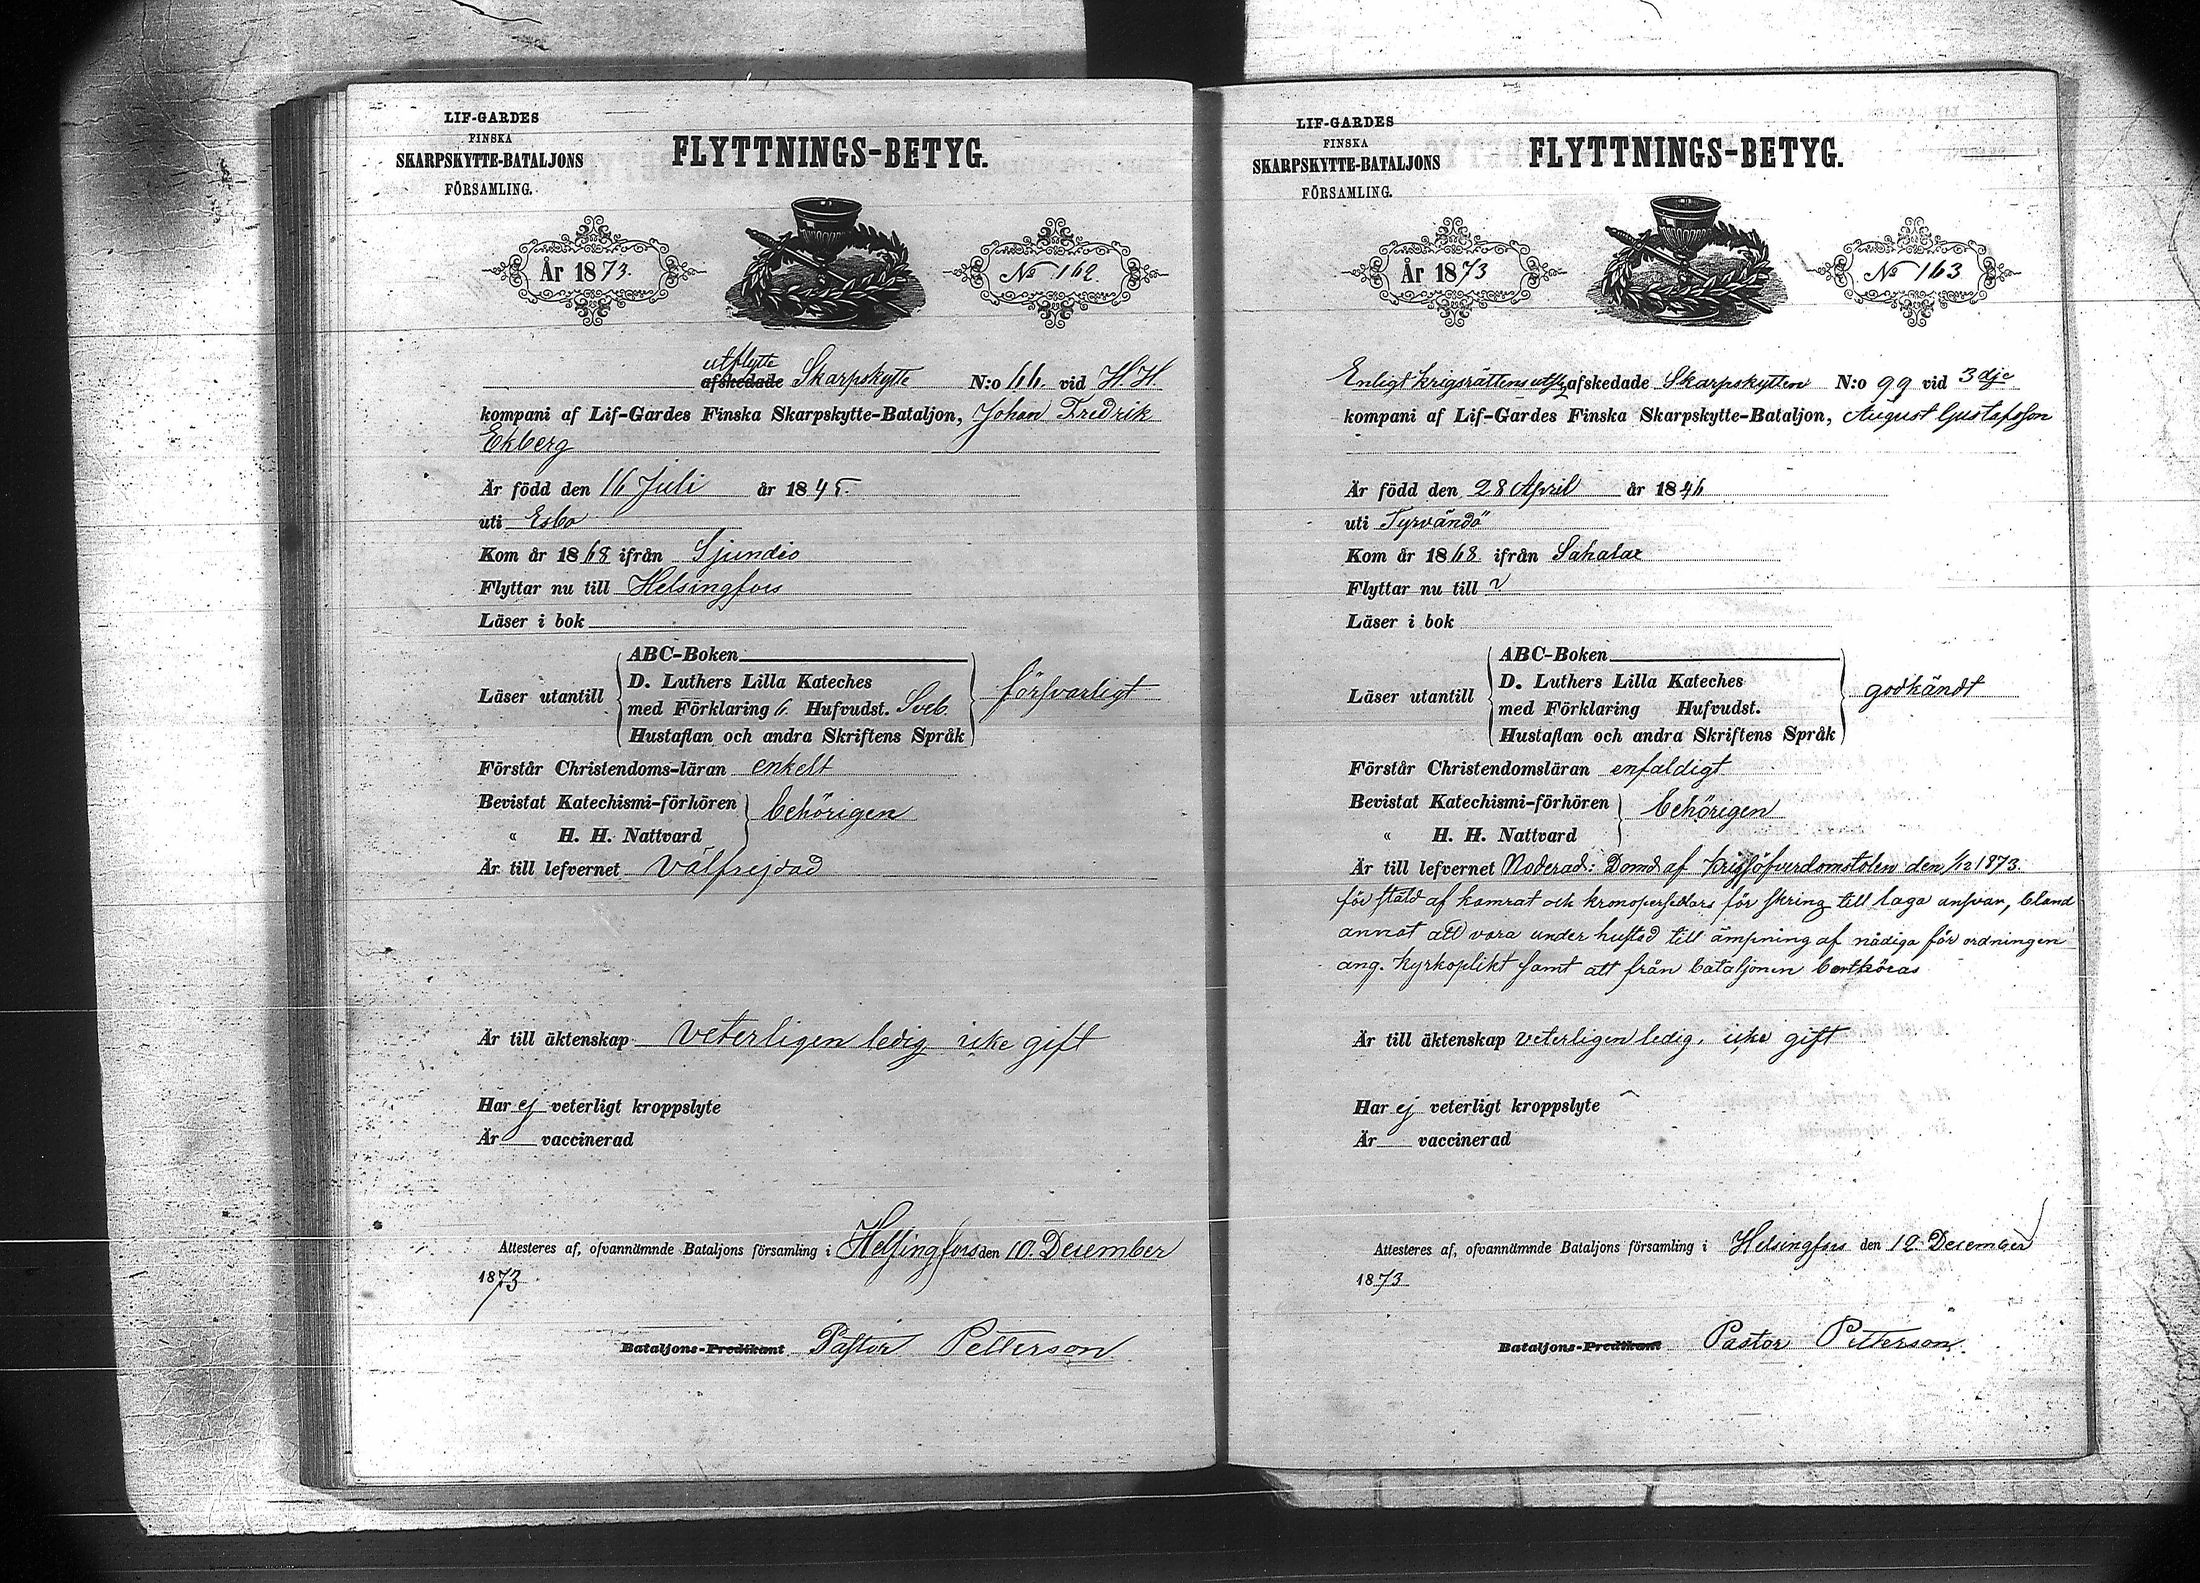 LIF-GARDES
FINSKA
SKARPSKYTTE-BATALJONS
FÖRSAMLING.
FLYTTNINGS-BETYG.
År 1873.
No 162.
utflytte
afskedade Skarpskytte N:o 66. vid H. H.
kompani af Lif-Gardes Finska Skarpskytte-Bataljon, Johan Fredrik
Ekberg
Är född den 16 Juli år 1845.
uti Esbo
Kom år 1868 ifrån Sjundeo
Flyttar nu till Helsingfors
Läser i bok
Läser utantill
ABC-Boken
D. Luthers Lilla Kateches
med Förklaring 6. Hufvudst. Sveb.
Hustaflan och andra Skriftens Språk
försvarligt
Förstår Christendoms-läran enkelt
Bevistat Katechismi-förhören
« H. H. Nattvard
behörigen
Är till lefvernet Välfrejdad
Är till äktenskap veterligen ledig icke gift
Har ej veterligt kroppslyte
Är vaccinerad
Attesteres af, ofvannämnde Bataljons församling i Helsingfors den 10. December
1873
Bataljons-Predikant Pastor Petterson
LIF-GARDES
FINSKA
SKARPSKYTTE-BATALJONS
FÖRSAMLING.
FLYTTNINGS-BETYG.
År 1873
No 163
Enligt krigsrättens afskedade Skarpskytten N:o 99 vid 3dje
kompani af Lif-Gardes Finska Skarpskytte-Bataljon, August Gustafsson
Är född den 28 April år 1846
uti Tyrvändö
Kom år 1868 ifrån Sahalax
Flyttar nu till ?
Läser i bok
Läser utantill
ABC-Boken
D. Luthers Lilla Kateches
med Förklaring Hufvudst.
Hustaflan och andra Skriftens Språk
godkändt
Förstår Christendomsläran enfaldigt
Bevistat Katechismi-förhören
« H. H. Nattvard
behörigen
Är till lefvernet Noterad: Dömd af Krigsöfverdomstolen den 1/12 1873.
för stöld af kamrat och för till laga ansvar, bland
annat att vara under till af nådiga förordningen
ang. kyrkoplikt samt att från bataljonen bortköras
Är till äktenskap veterligen ledig, icke gift
Har ej veterligt kroppslyte
Är vaccinerad
Attesteres af, ofvannämnde Bataljons församling i Helsingfors den 12. December
1873
Bataljons-Predikant Pastor Petterson.